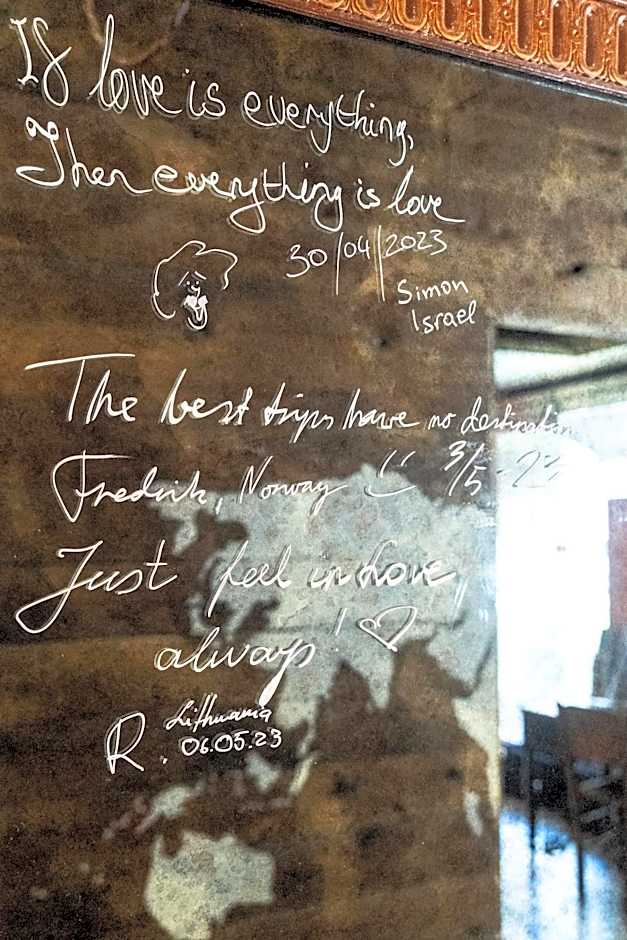 If love is everything,
Then everything is love
30/04/2023
Simon
Israel
The best trips have no destination
Fredrik, Norway 3/5-23
Just feel in love,
always! ♡
R. Lithuania
06.05.23